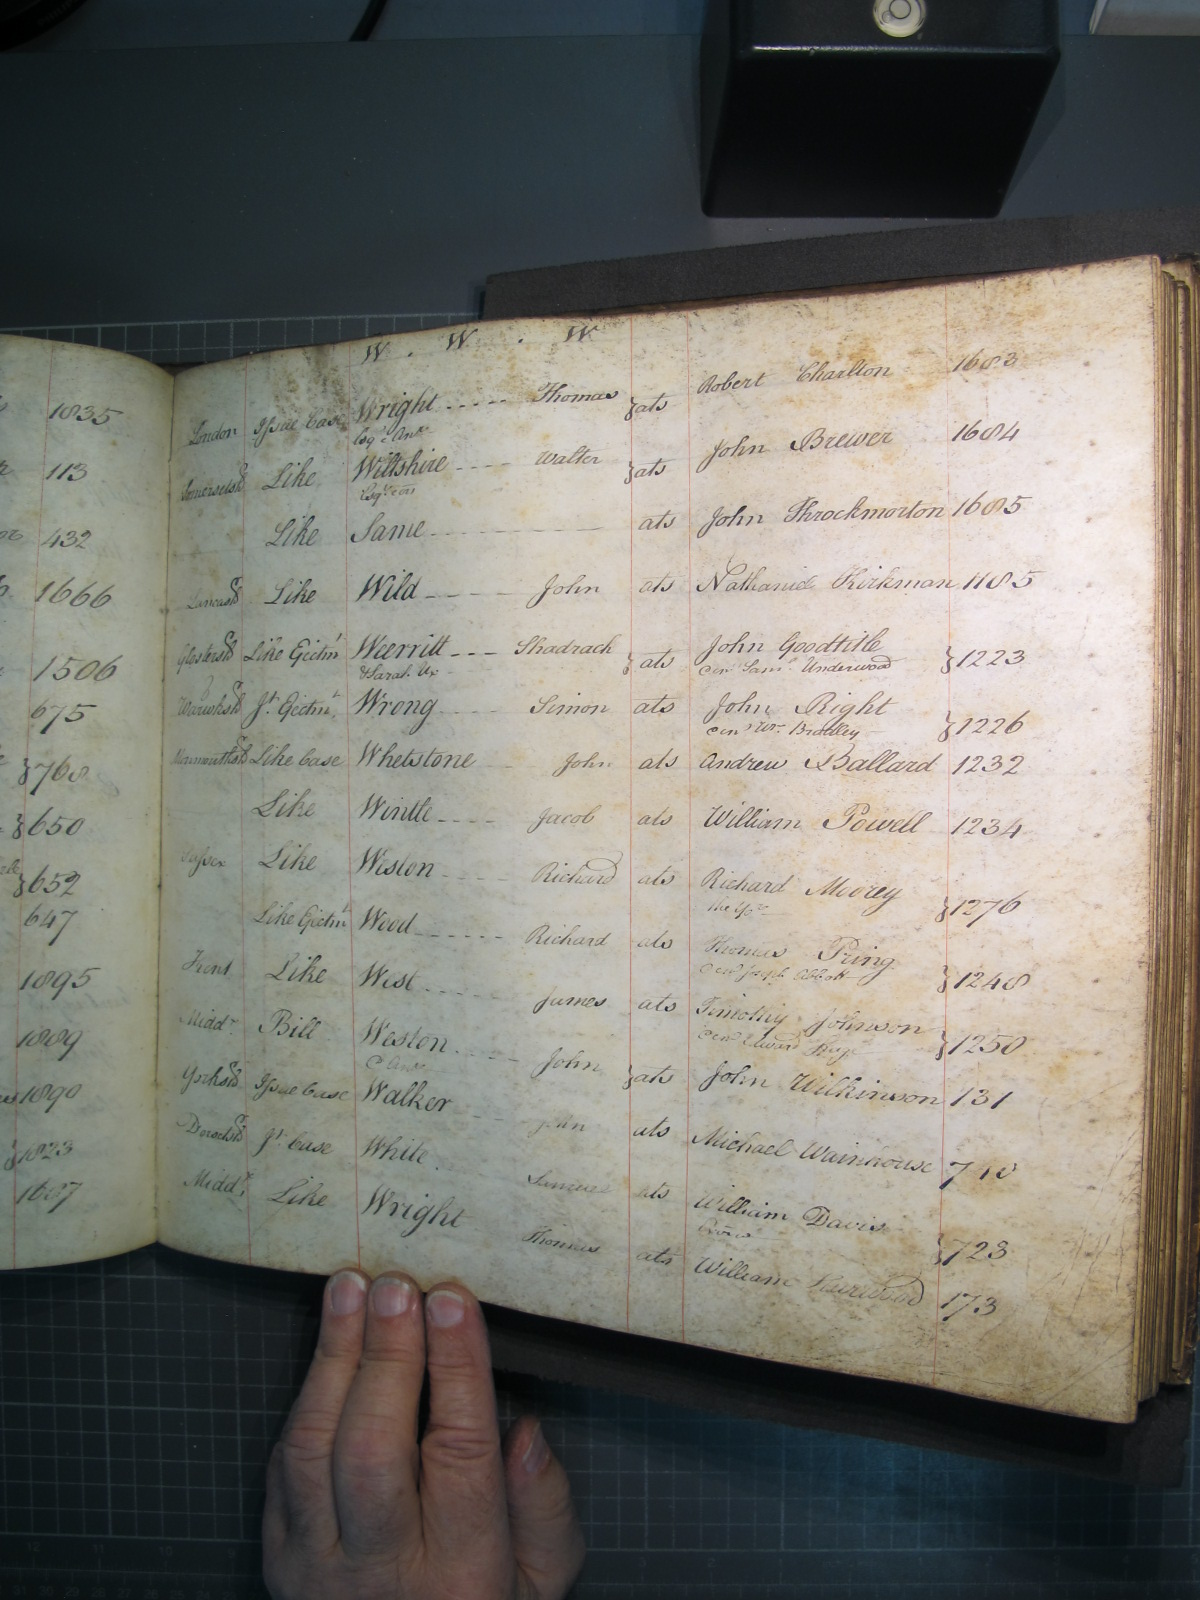 W . W . W
London Issue Case Wright Thomas } ats Robert Charlton 1683
Esqr &
Somersetsh Like Wiltshire Walter } ats John Brewer 1684
Like Same ats John Throckmorton 1685
Lancash Like Wild John ats Nathaniel Kirkman 1185
Glostersh Like Ejectmt Weerritt Shadrach } ats John Goodtitle } 1223
& Sarah Ux Dem Saml Underwood
Warwksh Jt Ejectmt Wrong Simon ats John Right } 1226
Dem Wm Bradley
Monmouthsh Like Case Whetstone John ats Andrew Ballard 1232
Like Wintle Jacob ats William Powell 1234
Sussex Like Weston Richard ats Richard Moorey } 1276
the Yor
Like Ejectmt Wood Richard ats Thomas Pring } 1248
Dem Joseph Abbott
Kent Like West James ats Timothy Johnson } 1250
Dem Edward
Middx Bill Weston John } ats John Wilkinson 131
Yorksh Issue Case Walker John ats Michael Wainhouse 718
Dorsetsh Jt Case White Samuel ats William Davis } 723
Middx Like Wright Thomas ats William 173
1835
113
432
1666
1506
675
} 768
} 650
} 652
647
1895
1889
1890
1823
1687